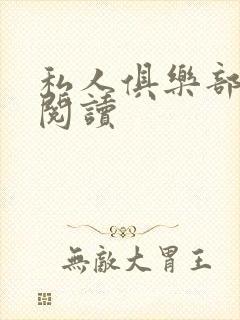 私人俱樂部
閱讀
無敵大胃王